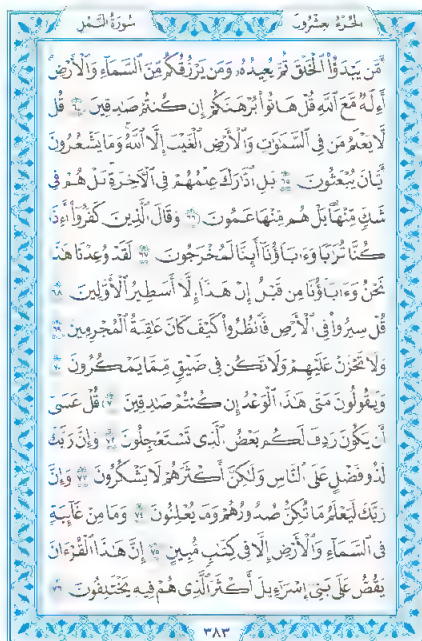 الجزء العشرون سورة النمل
أَمَّن يَبْدَؤُا۟ ٱلْخَلْقَ ثُمَّ يُعِيدُهُۥ وَمَن يَرْزُقُكُم مِّنَ ٱلسَّمَآءِ وَٱلْأَرْضِ ۗ
أَءِلَٰهٌ مَّعَ ٱللَّهِ ۚ قُلْ هَاتُوا۟ بُرْهَٰنَكُمْ إِن كُنتُمْ صَٰدِقِينَ ٦٤ قُل
لَّا يَعْلَمُ مَن فِى ٱلسَّمَٰوَٰتِ وَٱلْأَرْضِ ٱلْغَيْبَ إِلَّا ٱللَّهُ ۚ وَمَا يَشْعُرُونَ
أَيَّانَ يُبْعَثُونَ ٦٥ بَلِ ٱدَّٰرَكَ عِلْمُهُمْ فِى ٱلْءَاخِرَةِ ۚ بَلْ هُمْ فِى
شَكٍّ مِّنْهَا ۖ بَلْ هُم مِّنْهَا عَمُونَ ٦٦ وَقَالَ ٱلَّذِينَ كَفَرُوٓا۟ أَءِذَا
كُنَّا تُرَٰبًا وَءَابَآؤُنَآ أَئِنَّا لَمُخْرَجُونَ ٦٧ لَقَدْ وُعِدْنَا هَٰذَا
نَحْنُ وَءَابَآؤُنَا مِن قَبْلُ إِنْ هَٰذَآ إِلَّآ أَسَٰطِيرُ ٱلْأَوَّلِينَ ٦٨
قُلْ سِيرُوا۟ فِى ٱلْأَرْضِ فَٱنظُرُوا۟ كَيْفَ كَانَ عَٰقِبَةُ ٱلْمُجْرِمِينَ ٦٩
وَلَا تَحْزَنْ عَلَيْهِمْ وَلَا تَكُن فِى ضَيْقٍ مِّمَّا يَمْكُرُونَ ٧٠
وَيَقُولُونَ مَتَىٰ هَٰذَا ٱلْوَعْدُ إِن كُنتُمْ صَٰدِقِينَ ٧١ قُلْ عَسَىٰٓ
أَن يَكُونَ رَدِفَ لَكُم بَعْضُ ٱلَّذِى تَسْتَعْجِلُونَ ٧٢ وَإِنَّ رَبَّكَ
لَذُو فَضْلٍ عَلَى ٱلنَّاسِ وَلَٰكِنَّ أَكْثَرَهُمْ لَا يَشْكُرُونَ ٧٣ وَإِنَّ
رَبَّكَ لَيَعْلَمُ مَا تُكِنُّ صُدُورُهُمْ وَمَا يُعْلِنُونَ ٧٤ وَمَا مِنْ غَآئِبَةٍ
فِى ٱلسَّمَآءِ وَٱلْأَرْضِ إِلَّا فِى كِتَٰبٍ مُّبِينٍ ٧٥ إِنَّ هَٰذَا ٱلْقُرْءَانَ
يَقُصُّ عَلَىٰ بَنِىٓ إِسْرَٰٓءِيلَ أَكْثَرَ ٱلَّذِى هُمْ فِيهِ يَخْتَلِفُونَ ٧٦
٣٨٣